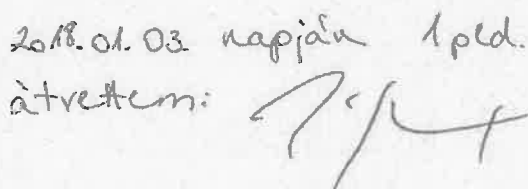 2018.01.03. napján 1 pld.
átvettem: